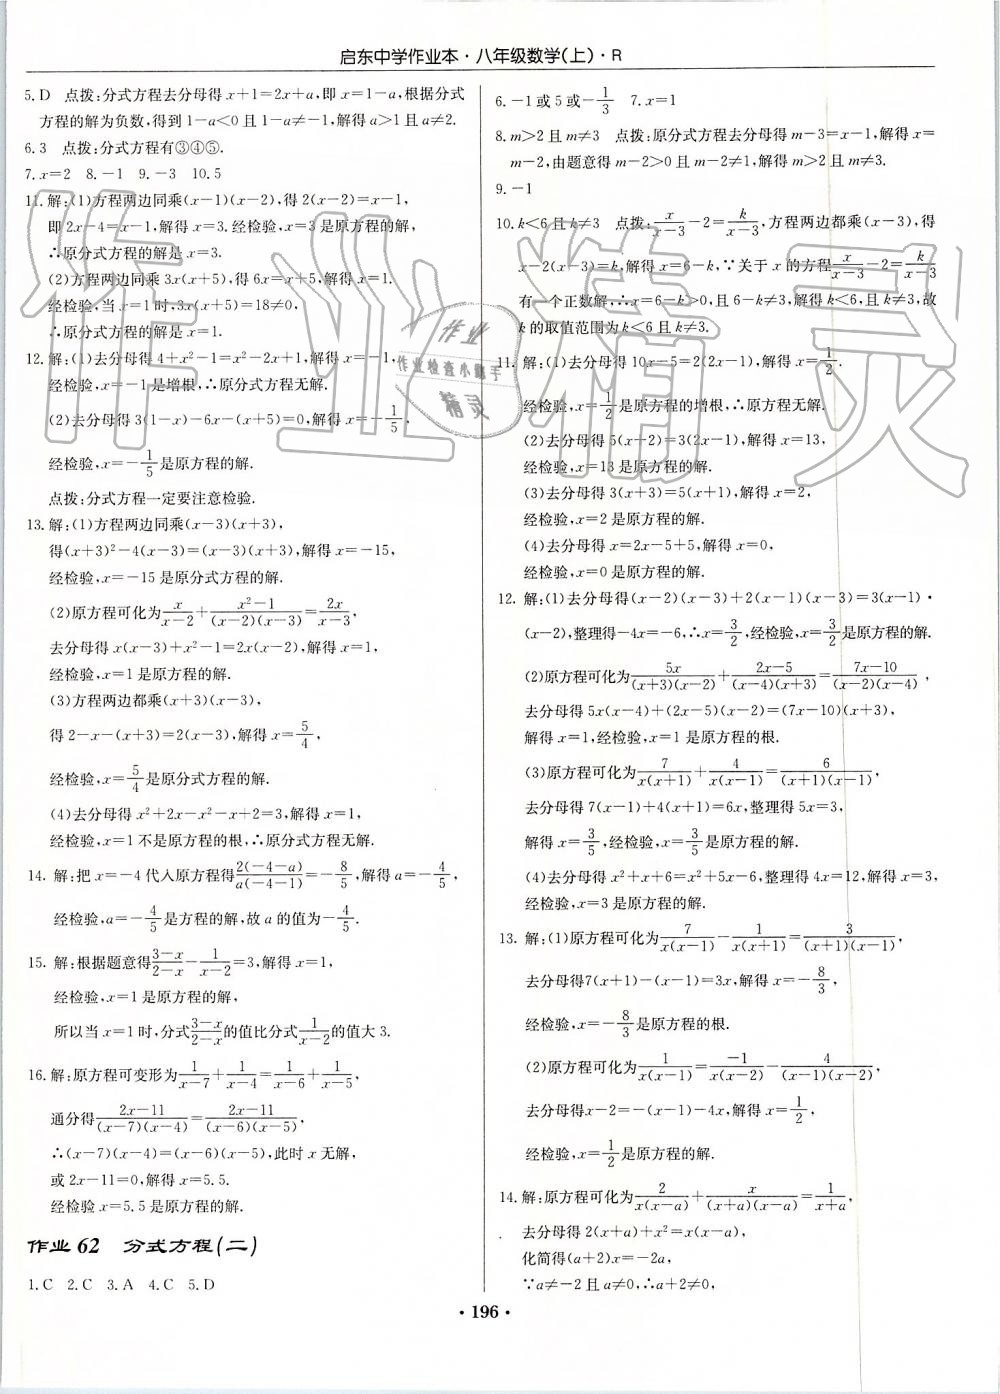 启东中学作业本·八年级数学(上)·R
5.D 点拨:分式方程去分母得 x+1=2x+a,即 x=1-a,根据分式
方程的解为负数,得到 1-a<0 且 1-a≠-1,解得 a>1 且 a≠2.
6.3 点拨:分式方程有③④⑤.
7.x=2 8.-1 9.-3 10.5
11.解:(1)方程两边同乘(x-1)(x-2),得 2(x-2)=x-1,
即 2x-4=x-1,解得 x=3.经检验,x=3 是原方程的解.
∴原分式方程的解是 x=3.
(2)方程两边同乘 3x(x+5),得 6x=x+5,解得 x=1.
经检验,当 x=1 时,3x(x+5)=18≠0,
∴原分式方程的解是 x=1.
12.解:(1)去分母得 4+x²-1=x²-2x+1,解得 x=-1,
经检验,x=-1 是增根,∴原分式方程无解.
(2)去分母得 3(1-x)-6x-(x+5)=0,解得 x=-1/5,
经检验,x=-1/5是原方程的解.
点拨:分式方程一定要注意检验.
13.解:(1)方程两边同乘(x-3)(x+3),
得(x+3)²-4(x-3)=(x-3)(x+3),解得 x=-15,
经检验,x=-15 是原分式方程的解.
(2)原方程可化为x/(x-2)+(x²-1)/((x-2)(x-3))=2x/(x-3),
去分母得 x(x-3)+x²-1=2x(x-2),解得 x=1,
经检验,x=1 是原方程的解.
(3)方程两边都乘(x+3)(x-3),
得 2-x-(x+3)=2(x-3),解得 x=5/4,
经检验,x=5/4是原分式方程的解.
(4)去分母得 x²+2x-x²-x+2=3,解得 x=1,
经检验,x=1 不是原方程的根,∴原分式方程无解.
14.解:把 x=-4 代入原方程得2(-4-a)/(a(-4-1))=-8/5,解得 a=-4/5,
经检验,a=-4/5是方程的解,故 a 的值为-4/5.
15.解:根据题意得(3-x)/(2-x)-1/(x-2)=3,解得 x=1,
经检验,x=1 是原方程的解,
所以当 x=1 时,分式(3-x)/(2-x)的值比分式1/(x-2)的值大 3.
16.解:原方程可变形为1/(x-7)+1/(x-4)=1/(x-6)+1/(x-5),
通分得(2x-11)/((x-7)(x-4))=(2x-11)/((x-6)(x-5)),
∴(x-7)(x-4)=(x-6)(x-5),此时 x 无解,
或 2x-11=0,解得 x=5.5.
经检验 x=5.5 是原方程的解.
作业 62 分式方程(二)
1.C 2.C 3.A 4.C 5.D
6.-1或5或-1/3 7.x=1
8.m>2 且 m≠3 点拨:原分式方程去分母得 m-3=x-1,解得 x=
m-2,由题意得 m-2>0 且 m-2≠1,解得 m>2 且 m≠3.
9.-1
10.k<6且k≠3 点拨:x/(x-3)-2=k/(x-3),方程两边都乘(x-3),得
x-2(x-3)=k,解得 x=6-k,∵关于 x 的方程x/(x-3)-2=k/(x-3)
有一个正数解,∴x=6-k>0,且 6-k≠3,解得 k<6,且 k≠3,故
k 的取值范围为 k<6 且 k≠3.
11.解:(1)去分母得10x-5=2(2x-1),解得 x=1/2.
经检验,x=1/2是原方程的增根,∴原方程无解.
(2)去分母得 5(x+2)=3(2x-1),解得 x=13,
经检验,x=13 是原方程的解.
(3)去分母得 3(x+3)=5(x+1),解得 x=2,
经检验,x=2 是原方程的解.
(4)去分母得 x=2x-5+5,解得 x=0,
经检验,x=0 是原方程的解.
12.解:(1)去分母得(x-2)(x-3)+2(x-1)(x-3)=3(x-1)·
(x-2),整理得-4x=-6,∴x=3/2,经检验,x=3/2是原方程的解.
(2)原方程可化为5x/((x+3)(x-2))+(2x-5)/((x-4)(x+3))=(7x-10)/((x-2)(x-4)),
去分母得 5x(x-4)+(2x-5)(x-2)=(7x-10)(x+3),
解得 x=1,经检验,x=1 是原方程的根.
(3)原方程可化为7/(x(x+1))+4/(x(x-1))=6/((x+1)(x-1)),
去分母得 7(x-1)+4(x+1)=6x,整理得 5x=3,
解得 x=3/5,经检验,x=3/5是原方程的解.
(4)去分母得 x²+x+6=x²+5x-6,整理得 4x=12,解得 x=3,
经检验,x=3 是原方程的解.
13.解:(1)原方程可化为7/(x(x-1))-1/(x(x+1))=3/((x+1)(x-1)),
去分母得7(x+1)-(x-1)=3x,解得 x=-8/3,
经检验,x=-8/3是原方程的根.
(2)原方程可化为1/(x(x-1))=-1/(x(x-2))-4/((x-1)(x-2)),
去分母得x-2=-(x-1)-4x,解得 x=1/2,
经检验,x=1/2是原方程的解.
14.解:原方程可化为2/(x(x-a))+x/((x+a)(x-a))=1/(x+a),
去分母得 2(x+a)+x²=x(x-a),
化简得(a+2)x=-2a,
∵a≠-2 且 a≠0,∴a+2≠0,
·196·
作业精灵
作业
作业检查小助手
精灵